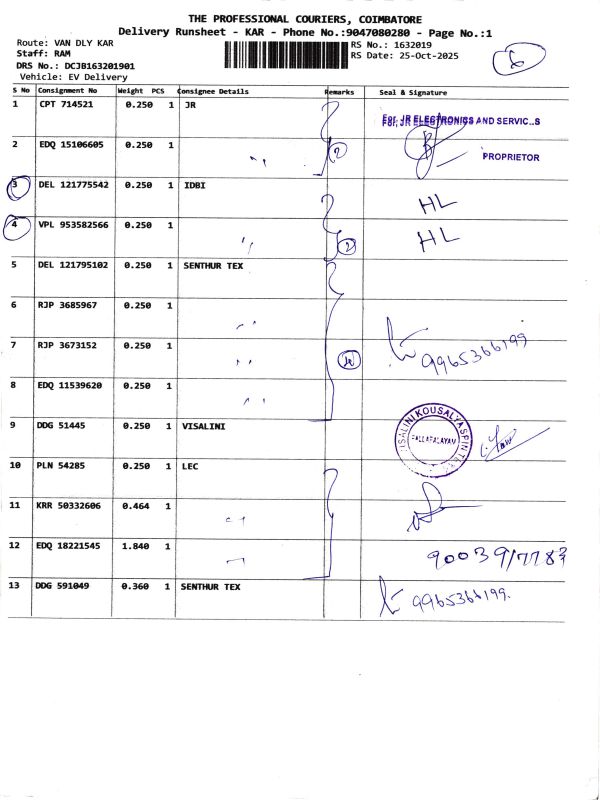 THE PROFESSIONAL COURIERS, COIMBATORE
Delivery Runsheet - KAR - Phone No.:9047080280 - Page No.:1
Route: VAN DLY KAR
Staff: RAM
DRS No.: DCJB163201901
Vehicle: EV Delivery
RS No.: 1632019
RS Date: 25-Oct-2025
6
S No Consignment No Weight PCS Consignee Details Remarks Seal & Signature
1 CPT 714521 0.250 1 JR
For JR ELECTRONICS AND SERVIC..S
2 EDQ 15106605 0.250 1 " 2
PROPRIETOR
3 DEL 121775542 0.250 1 IDBI HL
4 VPL 953582566 0.250 1 " 2 HL
5 DEL 121795102 0.250 1 SENTHUR TEX
6 RJP 3685967 0.250 1 "
7 RJP 3673152 0.250 1 " 4 9965366199
8 EDQ 11539620 0.250 1 "
9 DDG 51445 0.250 1 VISALINI
PALLAPALAYAM
10 PLN 54285 0.250 1 LEC
11 KRR 50332606 0.464 1 "
12 EDQ 18221545 1.840 1 "
13 DDG 591049 0.360 1 SENTHUR TEX 9965366199.